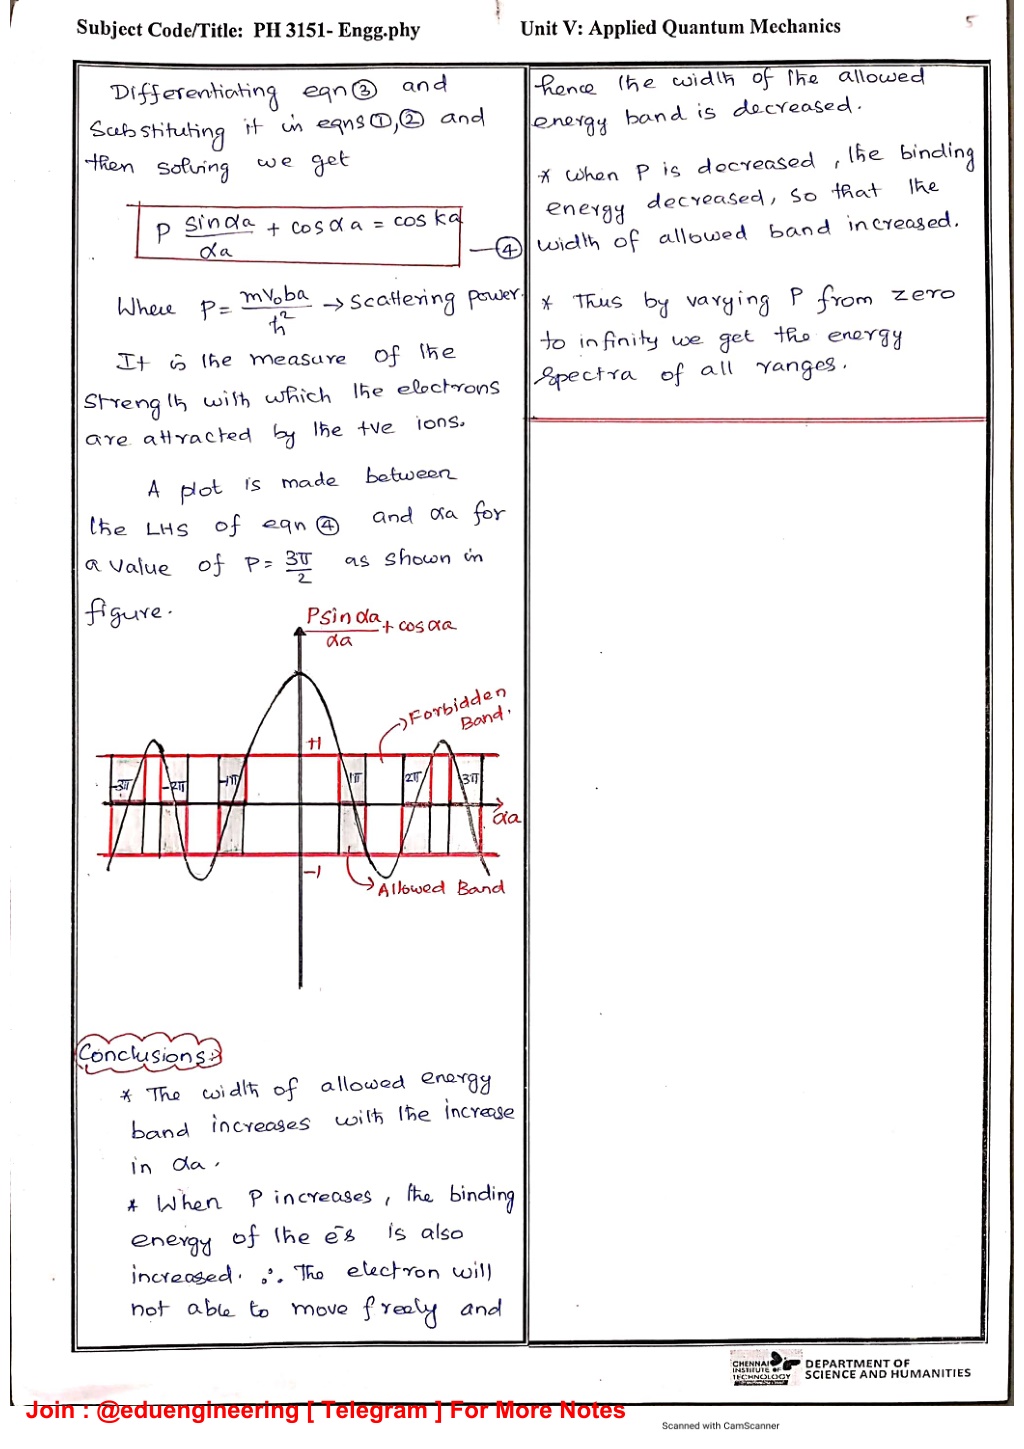 Subject Code/Title: PH 3151- Engg.phy
Unit V: Applied Quantum Mechanics
5
Differentiating eqn ③ and
Substituting it in eqns ①,② and
then solving we get
P sinαa/αa + cosαa = cos ka —④
Where P = mV₀ba/ħ² → scattering power.
It is the measure of the
strength with which the electrons
are attracted by the +ve ions.
A plot is made between
the LHS of eqn ④ and αa for
a value of P = 3π/2 as shown in
figure.
P sinαa/αa + cosαa
Forbidden
Band.
+1
-3π
-2π
-1π
1π
2π
3π
αa
-1
Allowed Band
Conclusions:
* The width of allowed energy
band increases with the increase
in αa.
* When P increases, the binding
energy of the e⁻s is also
increased. ∴ The electron will
not able to move freely and
hence the width of the allowed
energy band is decreased.
* when P is decreased, the binding
energy decreased, so that the
width of allowed band increased.
* Thus by varying P from zero
to infinity we get the energy
Spectra of all ranges.
CHENNAI
INSTITUTE OF
TECHNOLOGY
DEPARTMENT OF
SCIENCE AND HUMANITIES
Join : @eduengineering [ Telegram ] For More Notes
Scanned with CamScanner